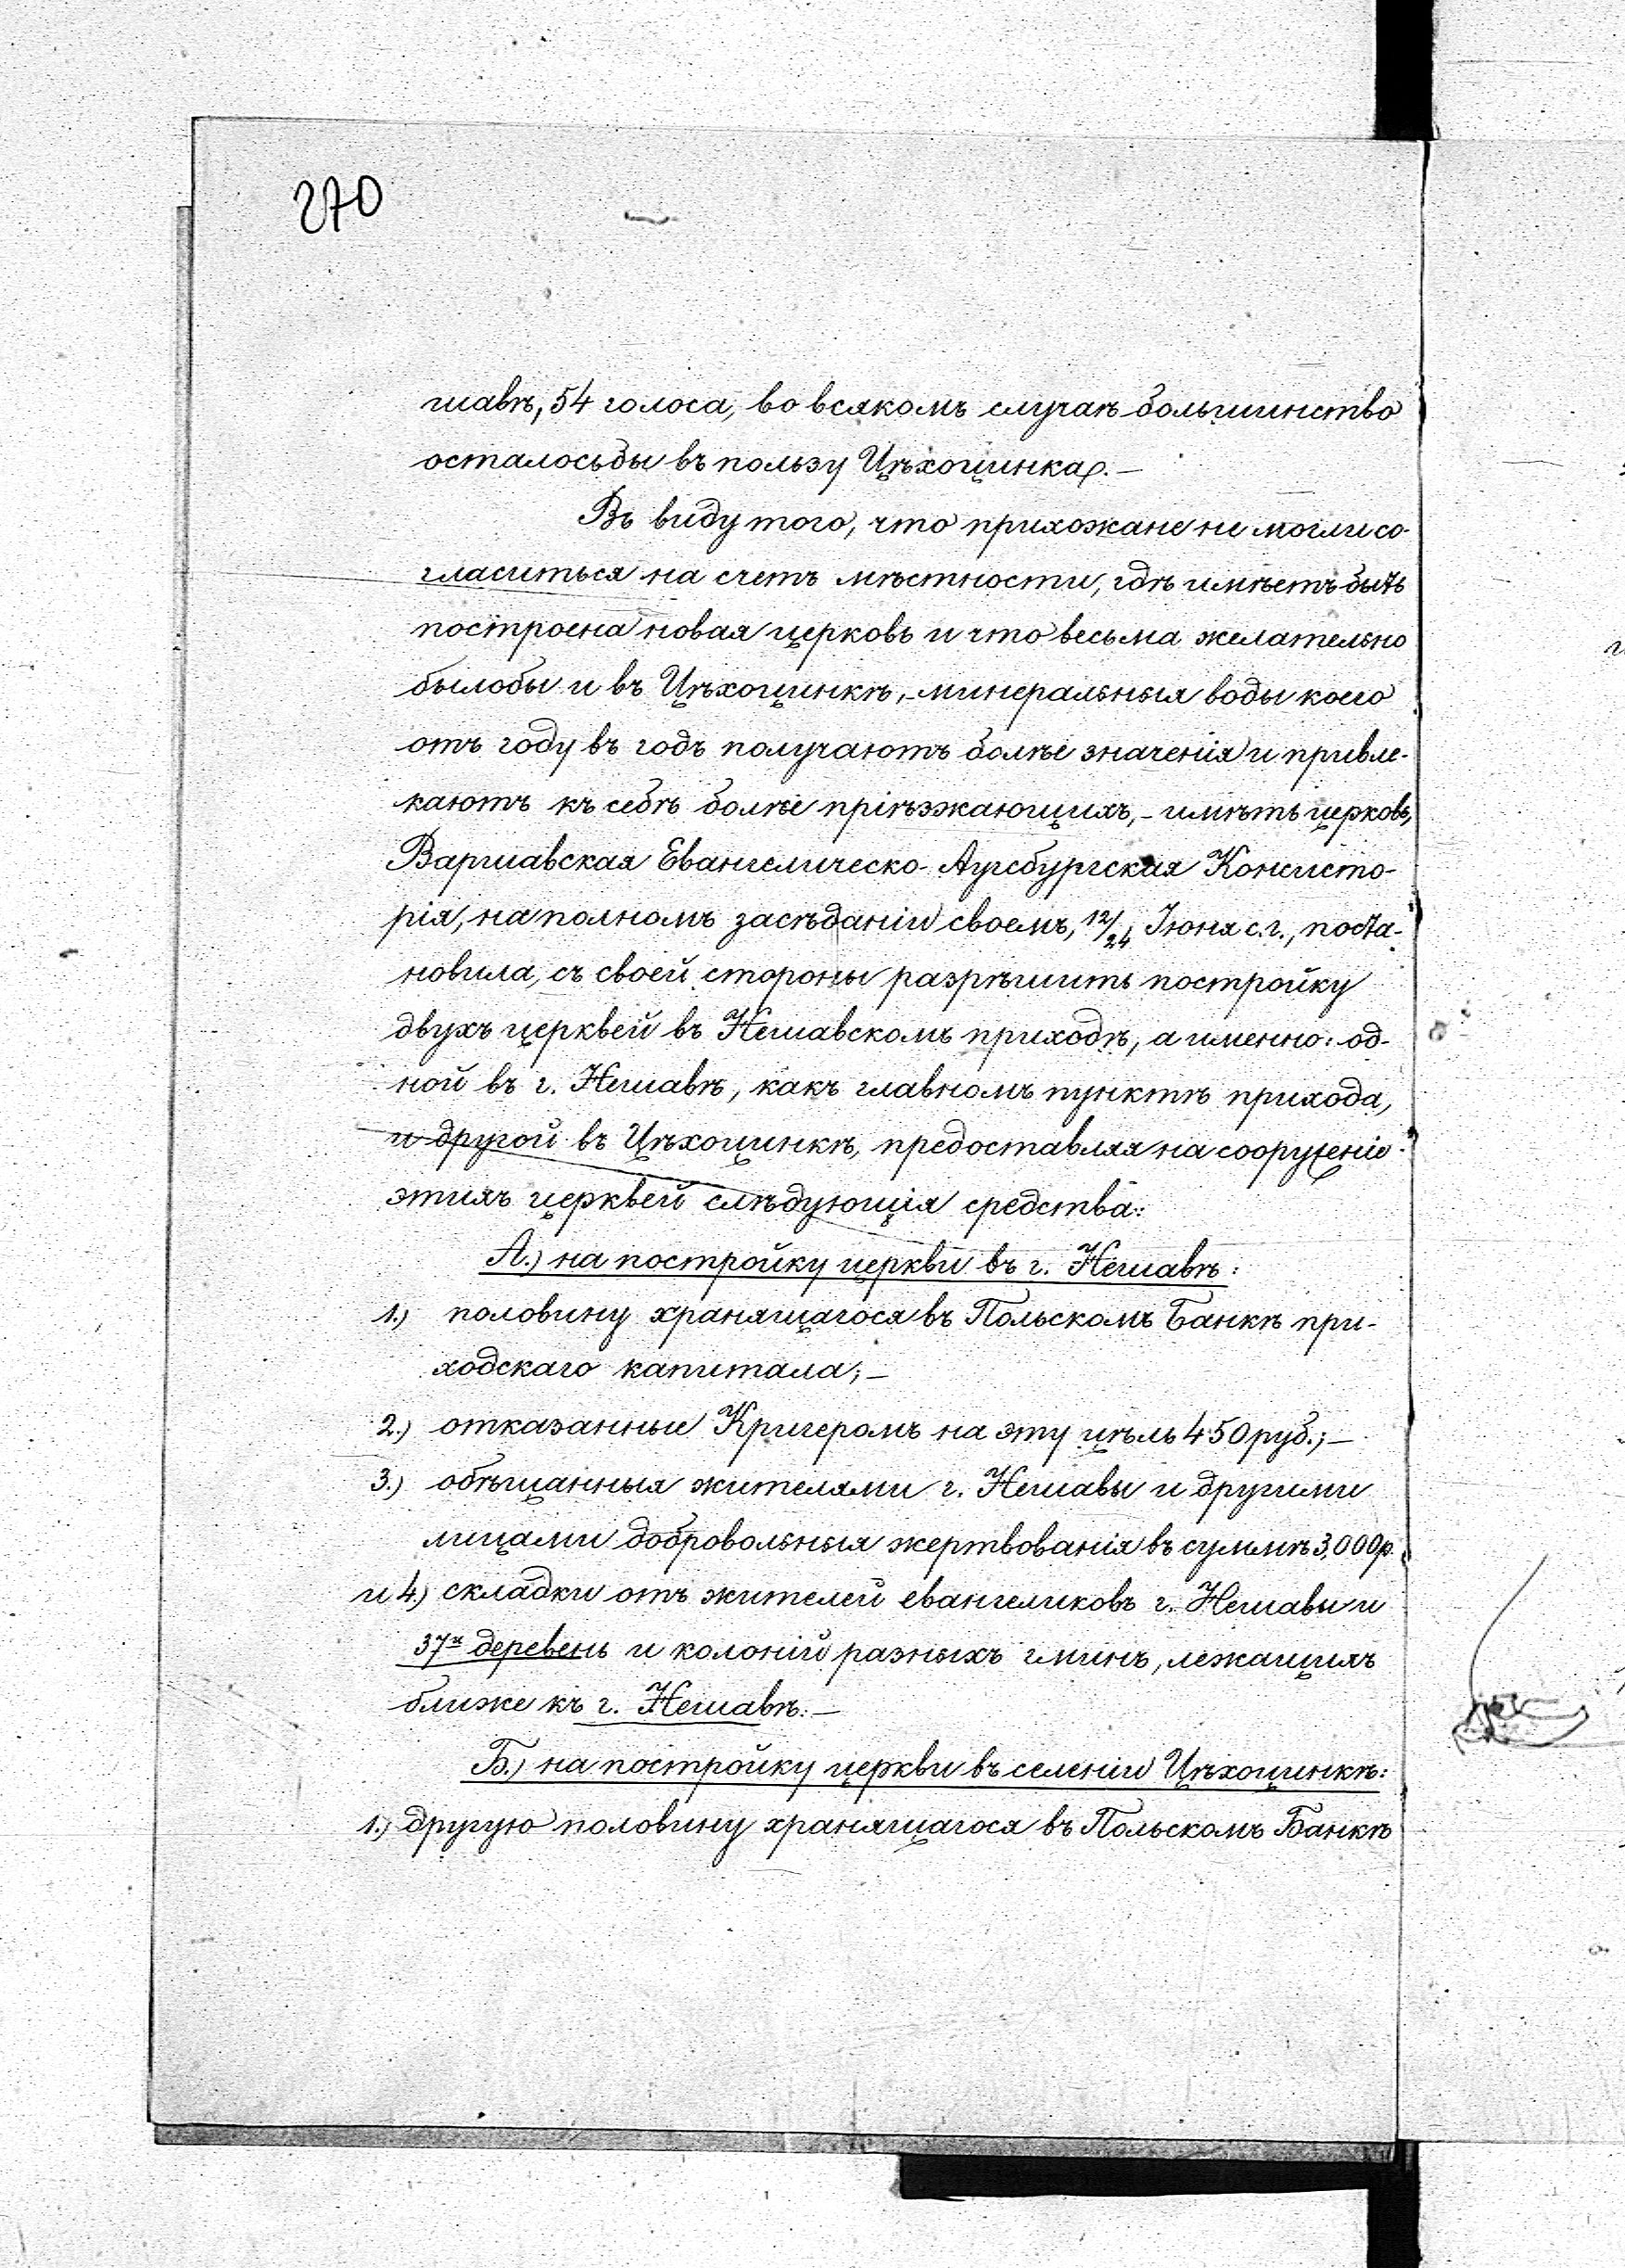 270
шавѣ, 54 голоса, во всякомъ случаѣ большинство
осталосьбы въ пользу Цѣхоцинка.—
Въ виду того, что прихожане не могли со-
гласиться на счетъ мѣстности, гдѣ имѣетъ быть
построена новая церковь и что весьма желательно
былобы и въ Цѣхоцинкѣ,- минеральныя воды коего
отъ году въ годъ получаютъ болѣе значенія и привле-
каютъ къ себѣ болѣе пріѣзжающихъ,- имѣть церковь,
Варшавская Евангелическо-Аугсбургская Консисто-
рія, на полномъ засѣданіи своемъ, 12/24 Іюня с.г., поста-
новила, съ своей стороны разрѣшить постройку
двухъ церквей въ Нешавскомъ приходѣ, а именно: од-
ной въ г. Нешавѣ, какъ главномъ пунктѣ прихода,
и другой въ Цѣхоцинкѣ, предоставляя на сооруженіе
этихъ церквей слѣдующія средства:
А.) на постройку церкви въ г. Нешавѣ:
1.) половину хранящагося въ Польскомъ Банкѣ при-
ходскаго капитала;—
2.) отказанные Кригеромъ на эту цѣль 450 руб.;—
3.) обѣщанныя жителями г. Нешавы и другими
лицами добровольныя жертвованія въ суммѣ 3,000 р.
и 4.) складки отъ жителей евангеликовъ г. Нешавы и
37х деревень и колоній разныхъ гминъ, лежащихъ
ближе къ г. Нешавѣ.—
Б.) на постройку церкви въ селеніи Цѣхоцинкѣ:
1.) другую половину хранящагося въ Польскомъ Банкѣ